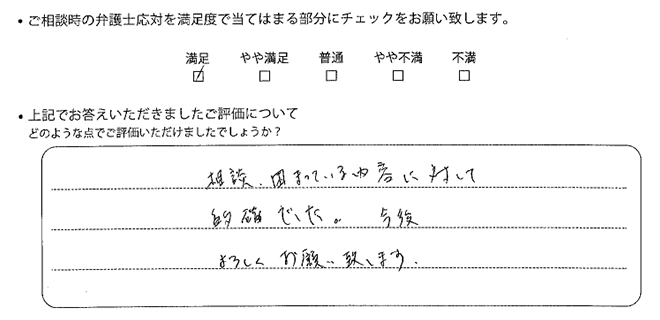 • ご相談時の弁護士応対を満足度で当てはまる部分にチェックをお願い致します。
満足 やや満足 普通 やや不満 不満
☑ ☐ ☐ ☐ ☐
• 上記でお答えいただきましたご評価について
どのような点でご評価いただけましたでしょうか？
相談、困まっている内容に対して
的確でした。 今後
よろしくお願い致します.